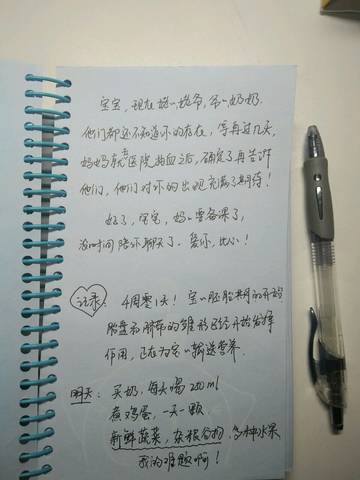 宝宝，现在姥姥姥爷，爷爷奶奶
他们都还不知道你的存在，等再过几天，
妈妈就去医院抽血之后，确定了再告诉
他们，他们对你的出现充满了期待！
好了，宝宝，妈妈要备课了，
没时间陪你聊天了。爱你，比心！
记录：4周零1天！宝宝胚胎
胎盘和脐带的雏形已经开始发挥
作用，正在为宝宝输送营养.
明天：买奶，每天喝200ml
煮鸡蛋，一天一颗
新鲜蔬菜，杂粮谷物，多种水果
我的谁啊！